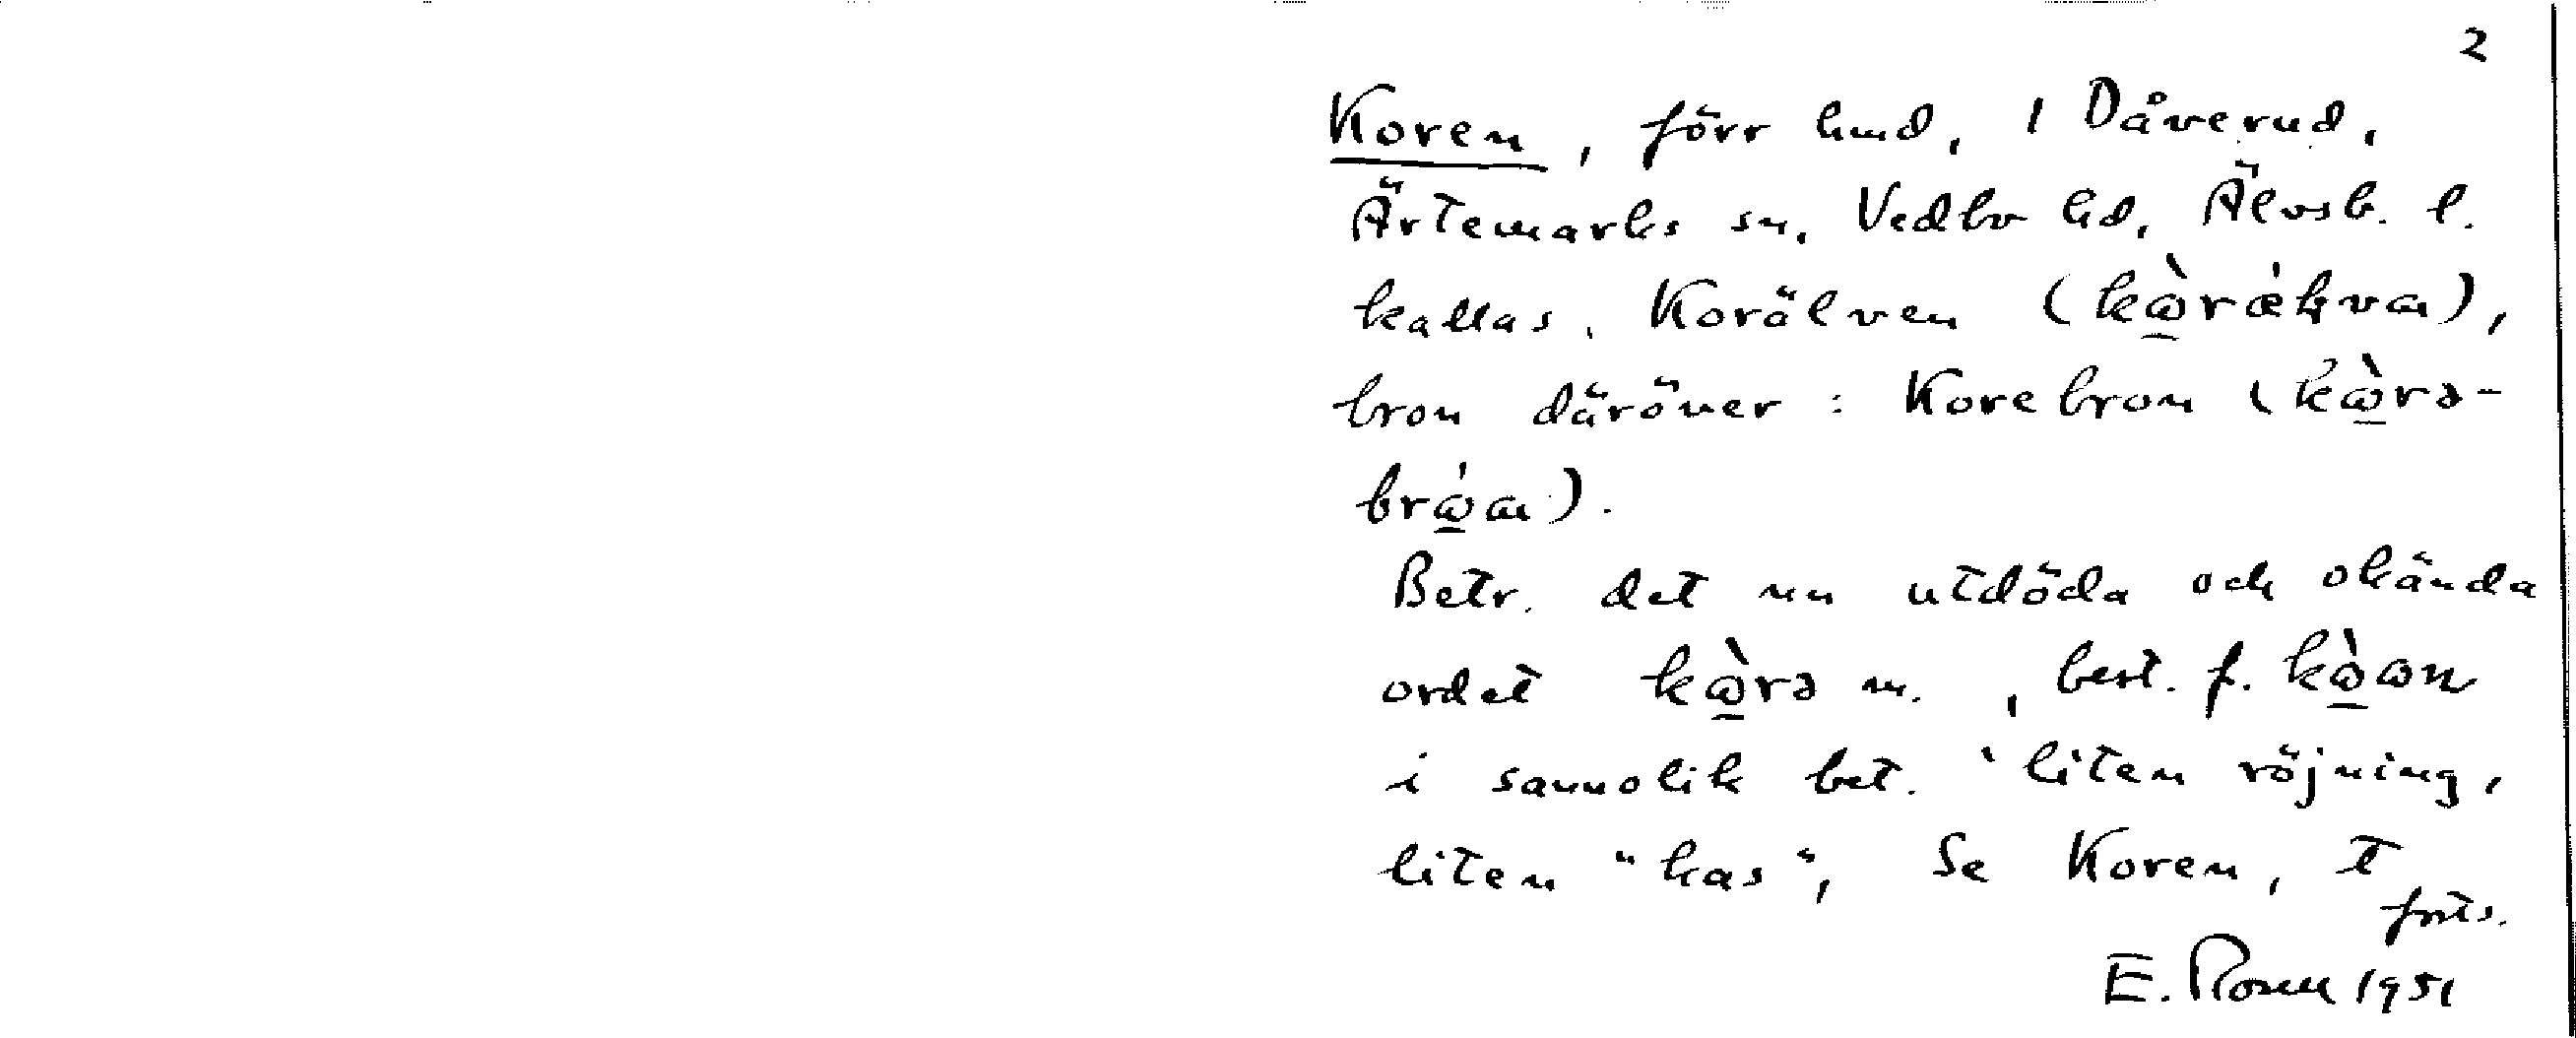 2
Koren, förr hmd, 1 Dåverud,
Ärtemarks sn, Vedbo hd, Älvsb. l.
kallas, Korälven (kὼ̱rǽḷva),
bron däröver: Korebron (kὼ̱rə-
brώ̱a).
Betr. det nu utdöda och okända
ordet kὼ̱rə m., best. f. kὼ̱ωn
i sannolik bet. 'liten röjning,
liten "kas", Se Koren, t
forts.
E. Rosen 1951